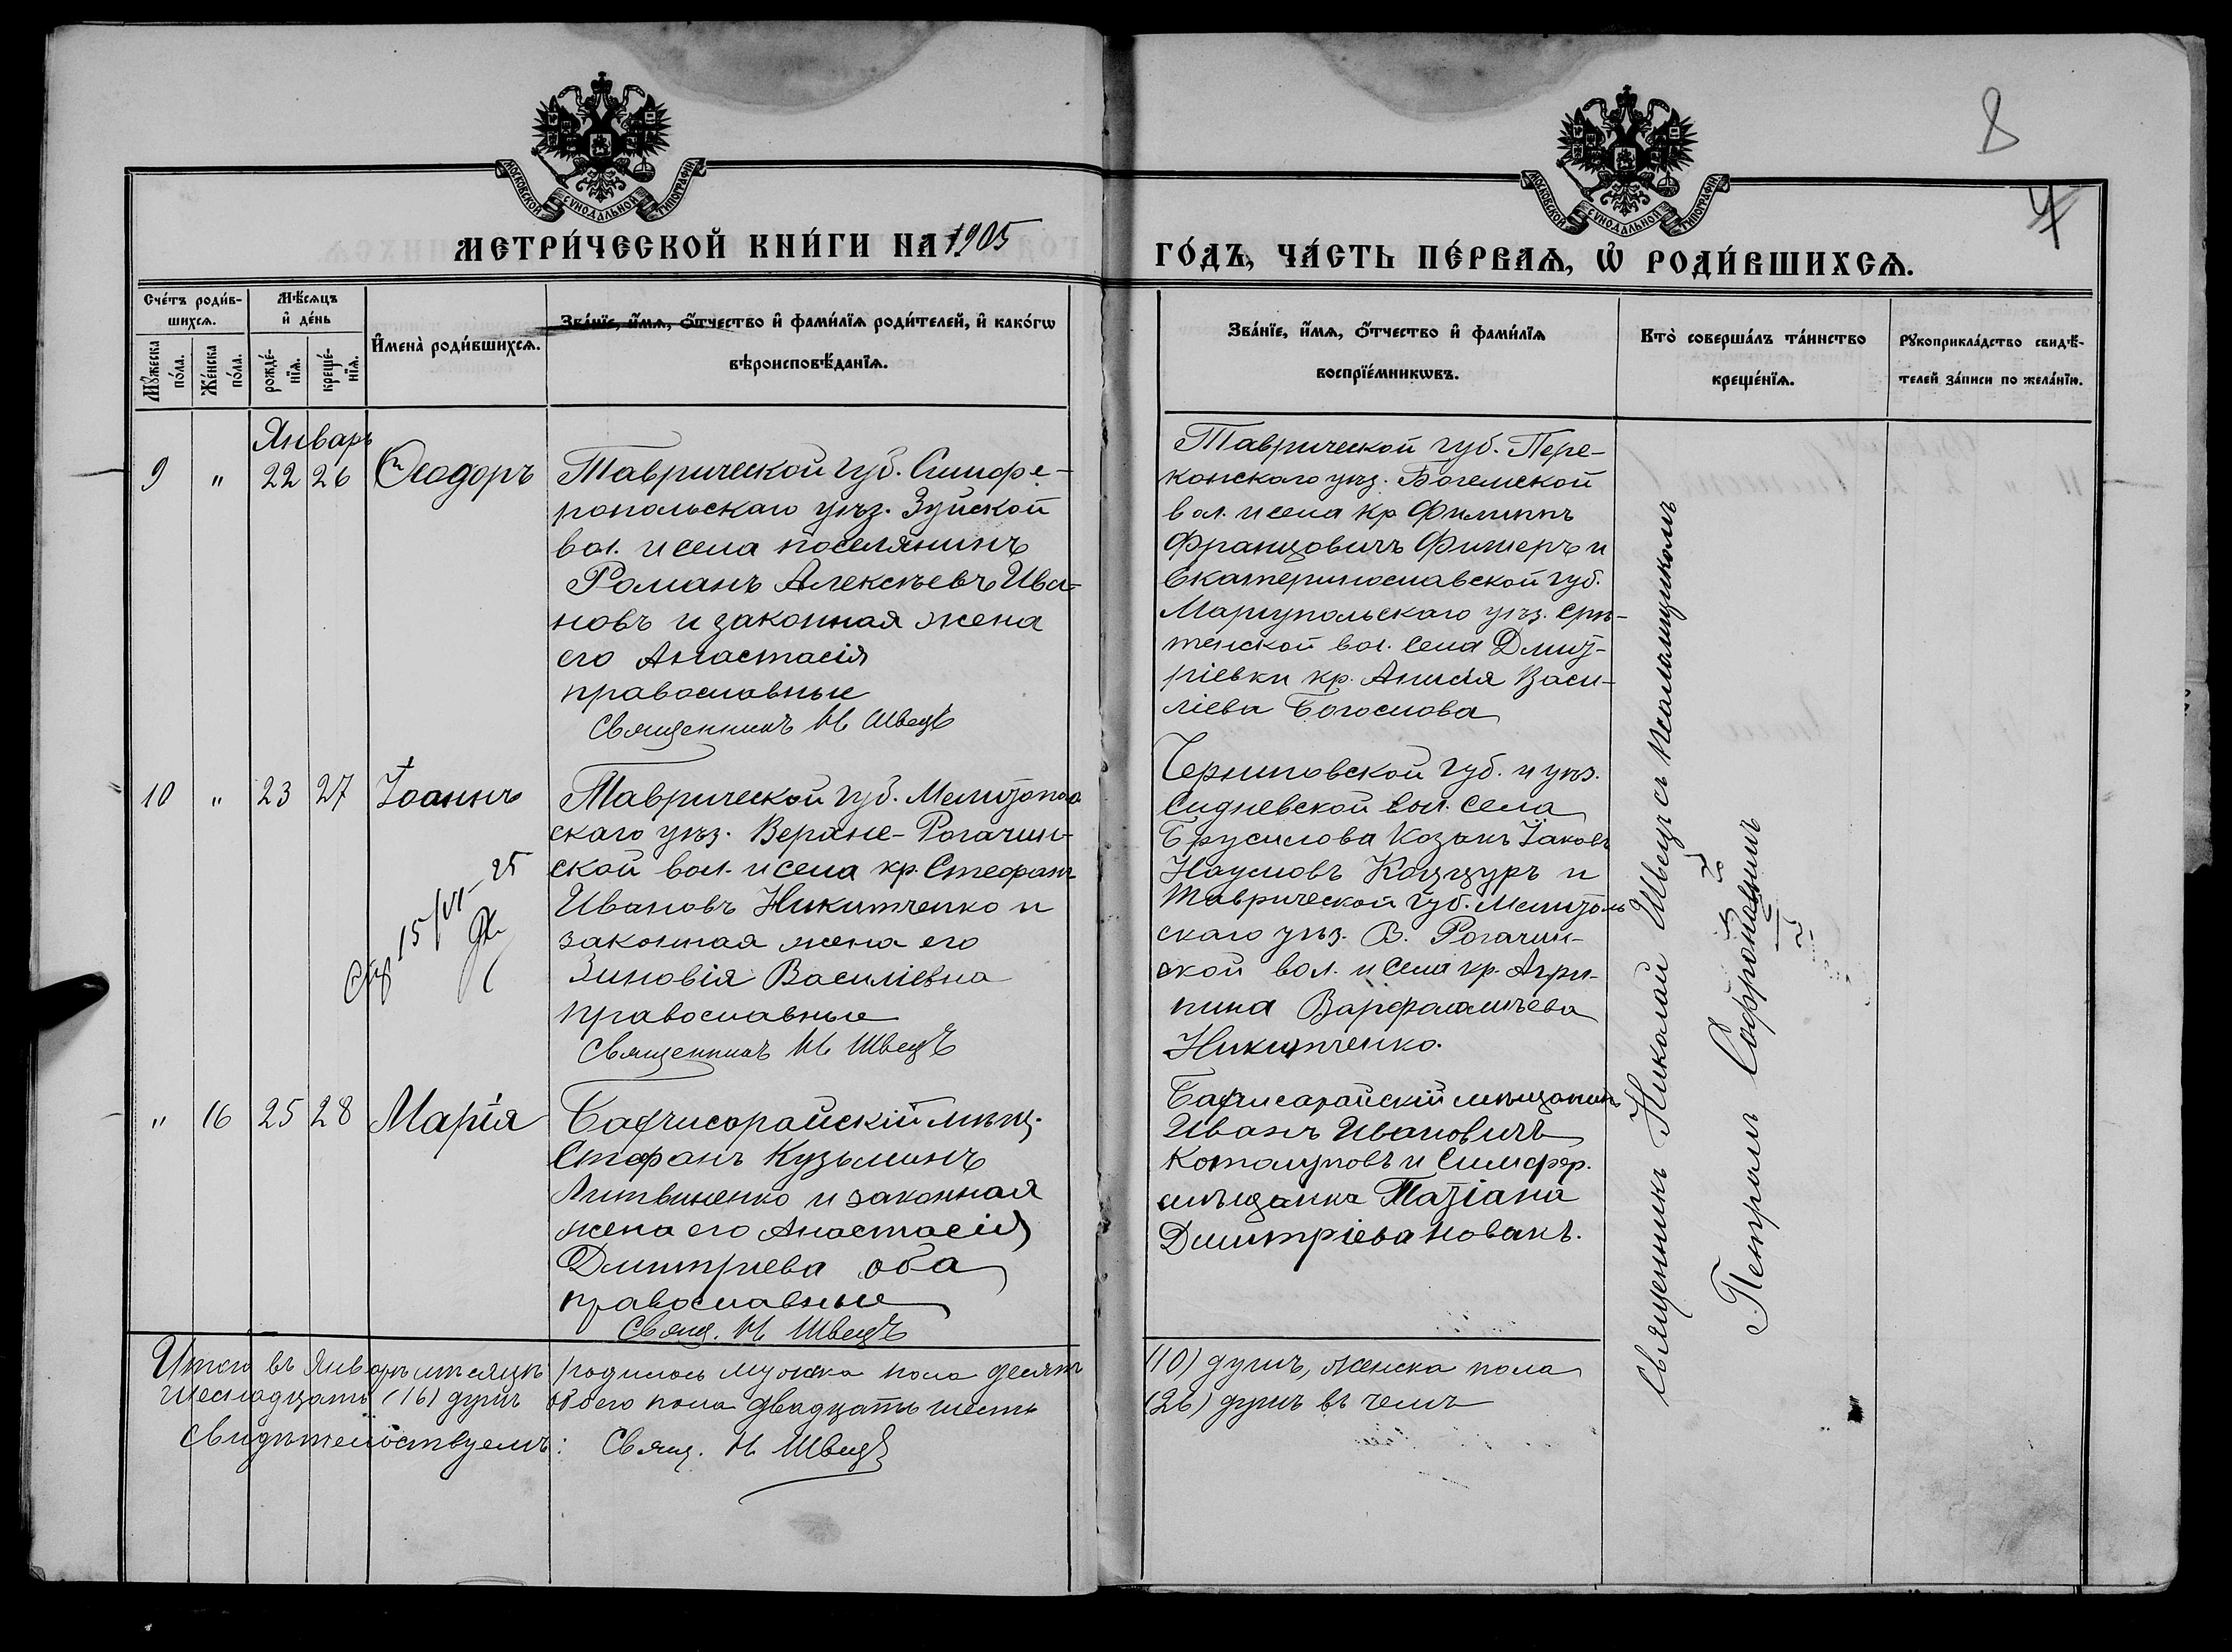 8
4
МОСКОВСКОЙ СѴНОДАЛЬНОЙ ТИПОГРАФІИ
МОСКОВСКОЙ СѴНОДАЛЬНОЙ ТИПОГРАФІИ
МЕТРИ́ЧЕСКОЙ КНИ́ГИ НА 1905
ГО́ДЪ, ЧА́СТЬ ПЕ́РВАѦ, Ѡ҆ РОДИ́ВШИХСѦ.
Сче́тъ роди́в-
шихсѧ.
Мѣ́сѧцъ
и҆ де́нь
Мꙋ́жеска по́ла.
Же́нска по́ла.
рожде́-
нїѧ.
креще́-
нїѧ.
И҆мена̀ роди́вшихсѧ.
Зва́нїе, и҆́мѧ, ѻ҆́тчество и҆ фами́лїѧ роди́телей, и҆ како́гѡ
вѣроисповѣ́данїѧ.
Зва́нїе, и҆́мѧ, ѻ҆́тчество и҆ фами́лїѧ
воспрїе́мникѡвъ.
Кто̀ соверша́лъ та́инство
креще́нїѧ.
Рꙋкоприкла́дство свидѣ́-
телей за́писи по жела́нїю.
Январь
9 " 22 26 Ѳеодоръ
Таврической губ. Симфе-
ропольскаго уѣз. Зуйской
вол. и села поселянинъ
Романъ Алексѣевъ Ива-
новъ и законная жена
его Анастасія
православные
Священникъ Н Швецъ
Таврической губ. Пере-
копскаго уѣз. Богемской
вол. и села кр Филиппъ
Францовичъ Фишеръ и
Екатеринославской губ.
Маріупольскаго уѣз. Срѣ-
тенской вол. села Дмит-
ріевки кр. Анисія Васи-
ліева Богослова
10 " 23 27 Іоаннъ
15/VI-25
Таврической губ. Мелитопол
скаго уѣз. Верхне-Рогачин-
ской вол. и села кр. Стефанъ
Ивановъ Никитченко и
законная жена его
Зиновія Василіевна
православные
Священникъ Н Швецъ
Черниговской губ. и уѣз.
Сидневской вол. села
Брусилова Козакъ Іаковъ
Наумовъ Коцуръ и
Таврической губ. Мелитоль
скаго уѣз. В. Рогачин-
ской вол. и села кр. Агри-
пина Варфоломѣева
Никитченко.
" 16 25 28 Марія
Бахчисарайскій мѣщ.
Стефанъ Кузьминъ
Литвиненко и законная
жена его Анастасія
Дмитриева оба
православные
Свящ. Н Швецъ
Бахчисарайскій мѣщанинъ
Иванъ Ивановичъ
и Симфер.
мѣщанка Татіана
Дмитріева Новакъ.
Священникъ Николай Швецъ съ псаломщикомъ
Петромъ Софроновымъ
Итого въ Январѣ мѣсяцѣ родилось мужска пола десять (10) душъ, женска пола
шестнадцать (16) душъ обоего пола двадцать шесть (26) душъ въ чемъ
свидѣтельствуемъ: Свящ. Н Швецъ